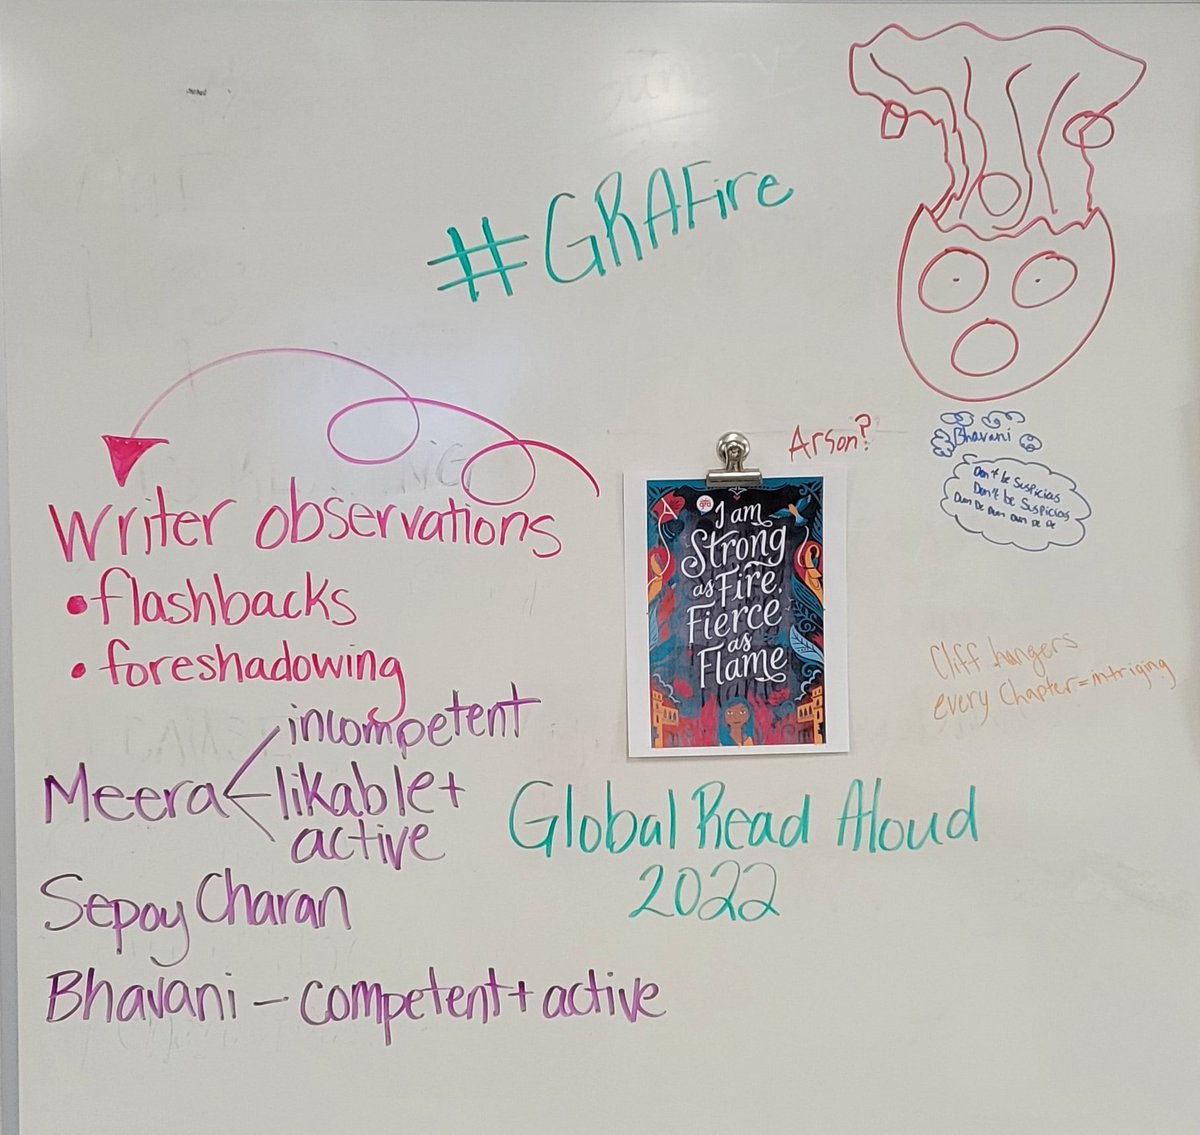 #GRAFire
Writer observations
• flashbacks
• foreshadowing
Meera
incompetent
likable +
active
Sepoy Charan
Bhavani – competent + active
Arson?
gra
I am
Strong
as Fire,
Fierce
as
Flame
Global Read Aloud
2022
Bhavani
Don't be Suspicias
Don't be Suspicias
Dum De Dum Dum De De
Cliff hangers
every Chapter = intriging